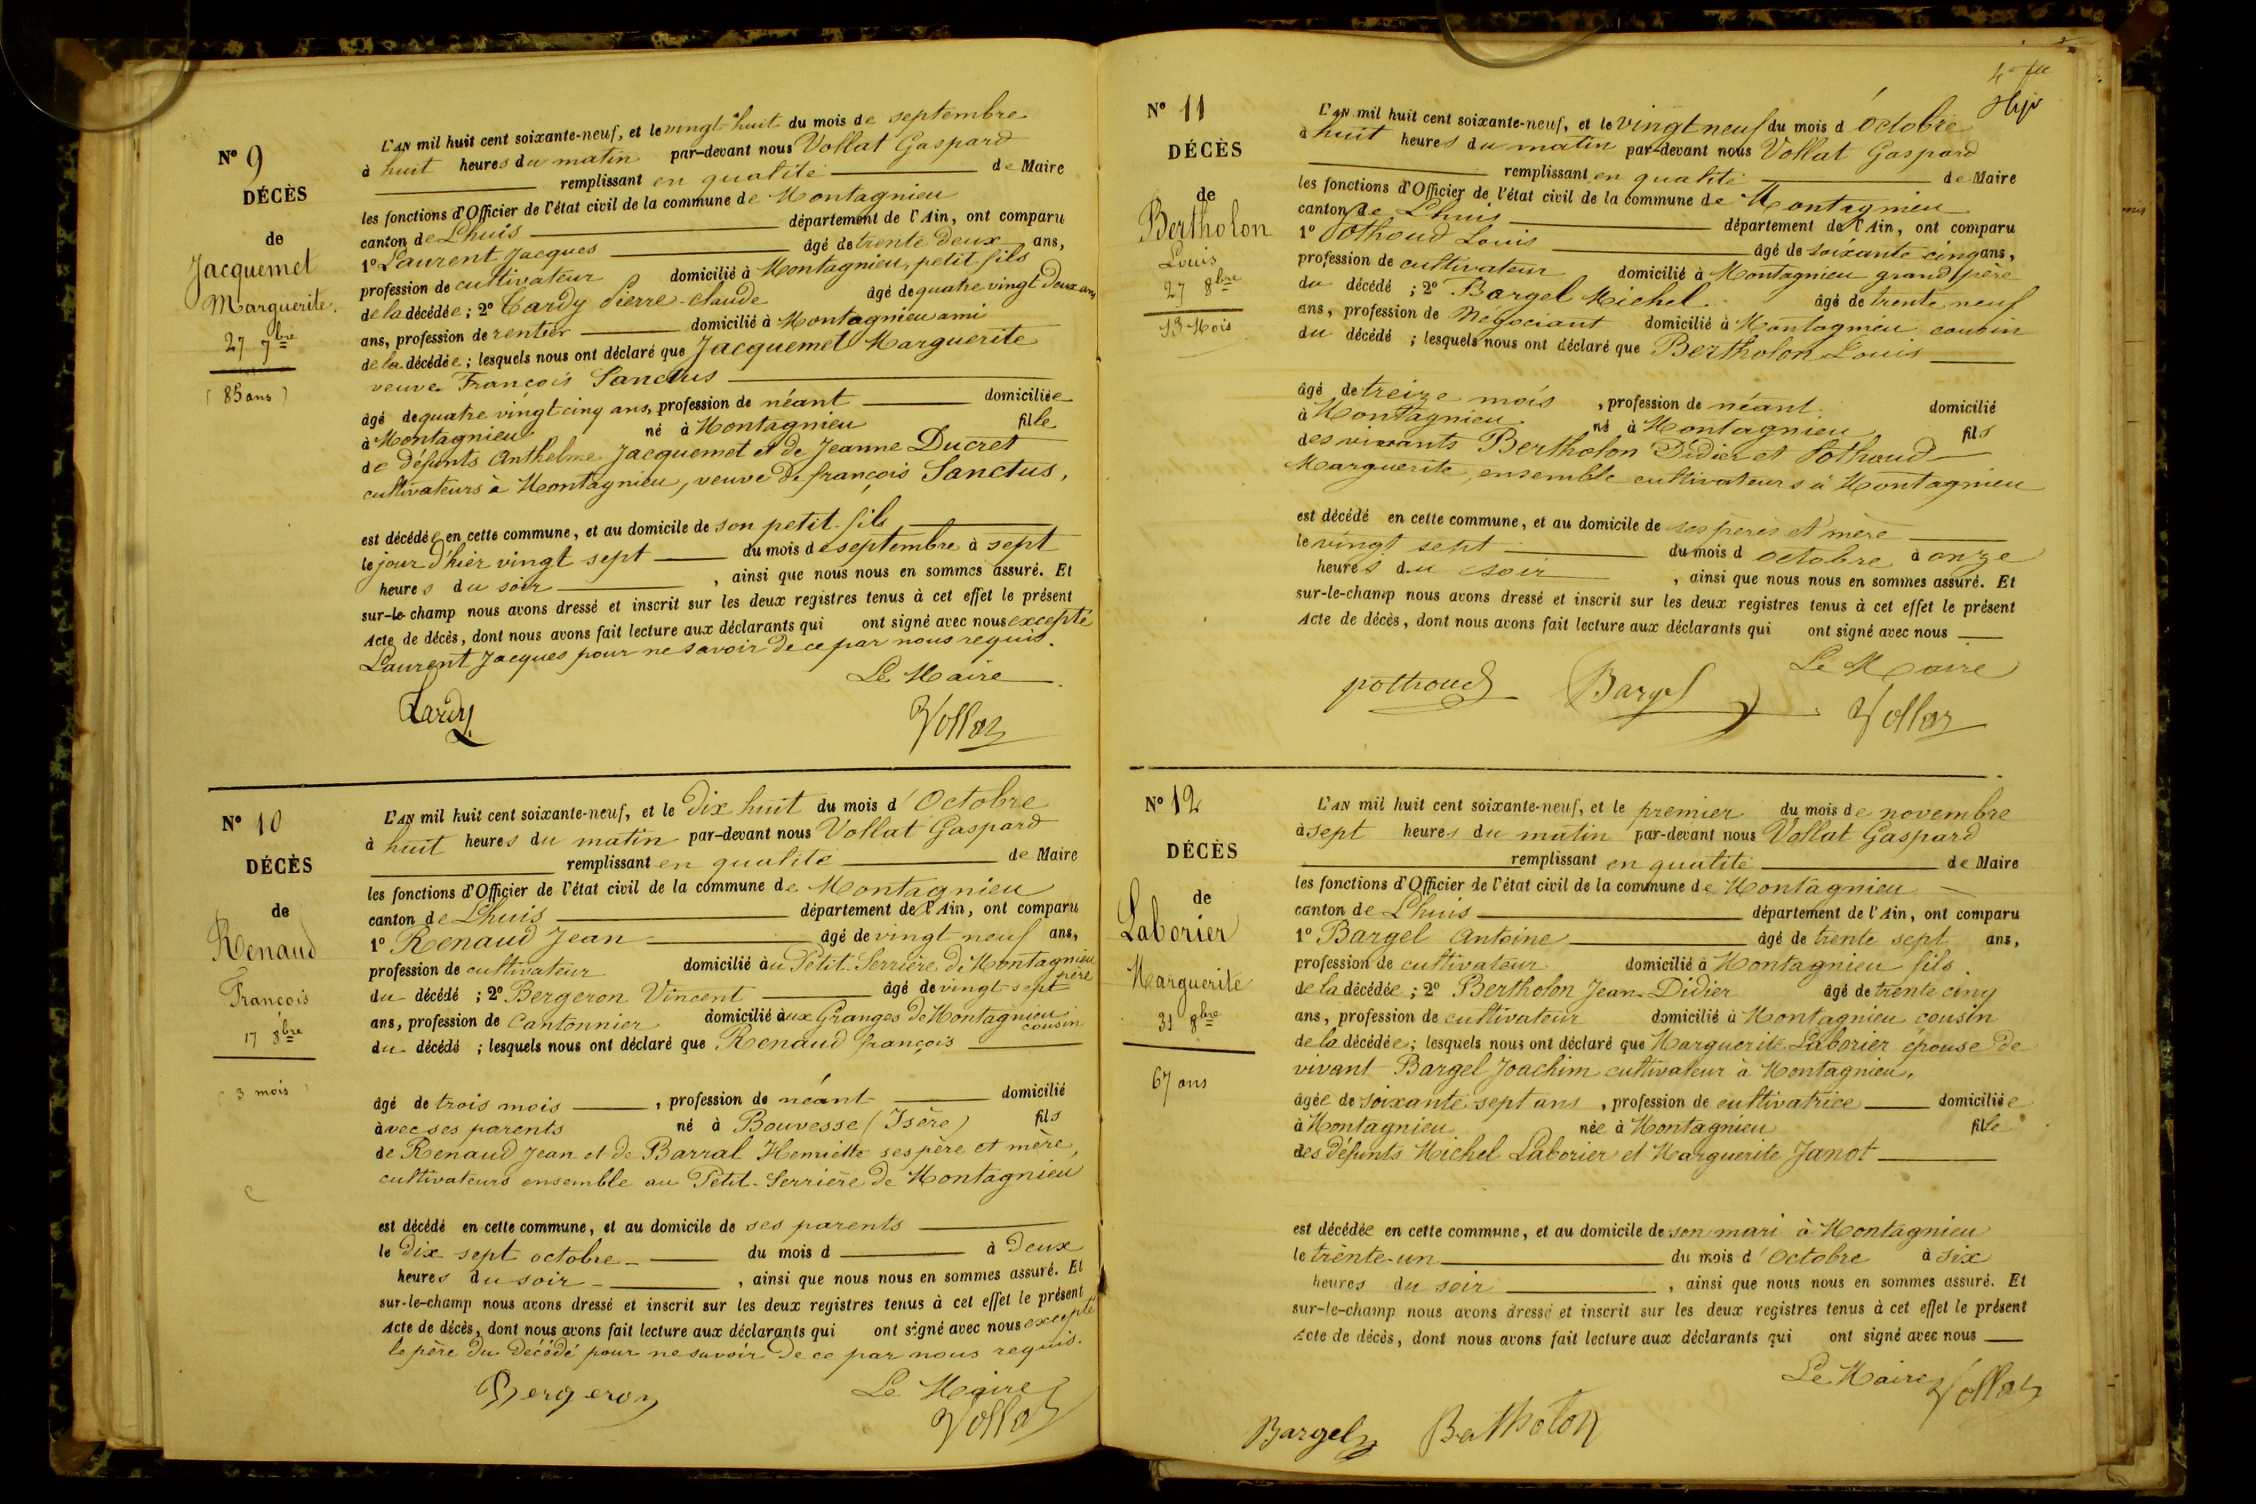 N° 9
DÉCÈS
de
Jacquemet
Marguerite.
27 7bre
(85 ans)
L'AN mil huit cent soixante-neuf, et le vingt huit du mois de septembre
à huit heures du matin par-devant nous Vollat Gaspard
remplissant en qualité de Maire
les fonctions d'Officier de l'état civil de la commune de Montagnieu
canton de Lhuis département de l'Ain, ont comparu
1° Laurent Jacques âgé de trente deux ans,
profession de cultivateur domicilié à Montagnieu, petit fils
de la décédée ; 2° Cardy Pierre-Claude âgé de quatre vingt deux ans
ans, profession de rentier domicilié à Montagnieu ami
de la décédée ; lesquels nous ont déclaré que Jacquemet Marguerite
veuve François Sanctus
âgé de quatre vingt cinq ans, profession de néant domiciliée
à Montagnieu né à Montagnieu fille
de défunts Anthelme Jacquemet et de Jeanne Ducret
cultivateurs à Montagnieu, veuve de françois Sanctus,
est décédée en cette commune, et au domicile de son petit-fils
le jour d'hier vingt sept du mois de septembre à sept
heures du soir , ainsi que nous nous en sommes assuré. Et
sur-le-champ nous avons dressé et inscrit sur les deux registres tenus à cet effet le présent
Acte de décès, dont nous avons fait lecture aux déclarants qui ont signé avec nous excepté
Laurent Jacques pour ne savoir de ce par nous requis.
Le Maire
Cardy Vollat
N° 10
DÉCÈS
de
Renaud
François
17 8bre
(3 mois)
L'AN mil huit cent soixante-neuf, et le dix huit du mois d'Octobre
à huit heures du matin par-devant nous Vollat Gaspard
remplissant en qualité de Maire
les fonctions d'Officier de l'état civil de la commune de Montagnieu
canton de Lhuis département de l'Ain, ont comparu
1° Renaud Jean âgé de vingt neuf ans,
profession de cultivateur domicilié au Petit-Serrière de Montagnieu père
du décédé ; 2° Bergeron Vincent âgé de vingt-sept
ans, profession de Cantonnier domicilié aux Granges de Montagnieu cousin
du décédé ; lesquels nous ont déclaré que Renaud françois
âgé de trois mois , profession de néant domicilié
avec ses parents né à Bouvesse (Isère) fils
de Renaud Jean et de Barral Henriette ses père et mère,
cultivateurs ensemble au Petit-Serrière de Montagnieu
est décédé en cette commune, et au domicile de ses parents
le dix sept octobre du mois d à deux
heures du soir , ainsi que nous nous en sommes assuré. Et
sur-le-champ nous avons dressé et inscrit sur les deux registres tenus à cet effet le présent
Acte de décès, dont nous avons fait lecture aux déclarants qui ont signé avec nous excepté
le père du décédé pour ne savoir de ce par nous requis.
Bergeron Le Maire
Vollat
N° 11
DÉCÈS
de
Bertholon
Louis
27 8bre
13 Mois
L'AN mil huit cent soixante-neuf, et le vingt neuf du mois d'Octobre
à huit heures du matin par-devant nous Vollat Gaspard
remplissant en qualité de Maire
les fonctions d'Officier de l'état civil de la commune de Montagnieu
canton de Lhuis département de l'Ain, ont comparu
1° Pothoud Louis âgé de soixante cinq ans,
profession de cultivateur domicilié à Montagnieu grand père
du décédé ; 2° Bargel Michel âgé de trente neuf
ans, profession de Négociant domicilié à Montagnieu cousin
du décédé ; lesquels nous ont déclaré que Bertholon Louis
âgé de treize mois , profession de néant domicilié
à Montagnieu né à Montagnieu fils
des vivants Bertholon Didier et Pothoud
Marguerite, ensemble cultivateurs à Montagnieu
est décédé en cette commune, et au domicile de ses pères et mère
le vingt sept du mois d octobre à onze
heures du soir , ainsi que nous nous en sommes assuré. Et
sur-le-champ nous avons dressé et inscrit sur les deux registres tenus à cet effet le présent
Acte de décès, dont nous avons fait lecture aux déclarants qui ont signé avec nous
Le Maire
pothoud Bargel Vollat
N° 12
DÉCÈS
de
Laborier
Marguerite
31 8bre
67 ans
L'AN mil huit cent soixante-neuf, et le premier du mois de novembre
à sept heures du matin par-devant nous Vollat Gaspard
remplissant en qualité de Maire
les fonctions d'Officier de l'état civil de la commune de Montagnieu
canton de Lhuis département de l'Ain, ont comparu
1° Bargel Antoine âgé de trente sept ans,
profession de cultivateur domicilié à Montagnieu fils
de la décédée ; 2° Bertholon Jean-Didier âgé de trente cinq
ans, profession de cultivateur domicilié à Montagnieu cousin
de la décédée ; lesquels nous ont déclaré que Marguerite Laborier épouse de
vivant Bargel Joachim cultivateur à Montagnieu,
âgée de soixante sept ans , profession de cultivatrice domiciliée
à Montagnieu née à Montagnieu fille
des défunts Michel Laborier et Marguerite Janot
est décédée en cette commune, et au domicile de son mari à Montagnieu
le trente-un du mois d'Octobre à six
heures du soir , ainsi que nous nous en sommes assuré. Et
sur-le-champ nous avons dressé et inscrit sur les deux registres tenus à cet effet le présent
Acte de décès, dont nous avons fait lecture aux déclarants qui ont signé avec nous
Le Maire Vollat
Bargel Bertholon